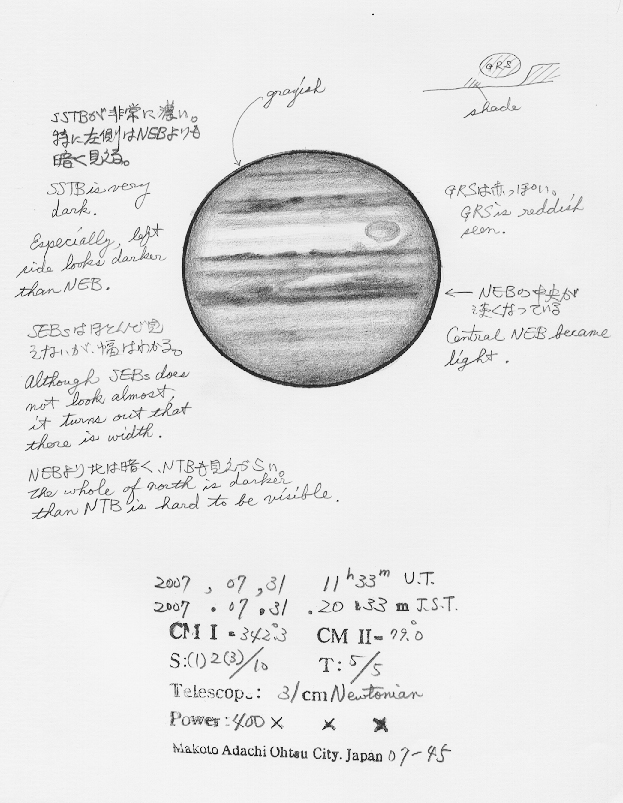 grayish
GRS
shade
SSTBが非常に濃い。
特に左側はNEBよりも
暗く見える。
SSTB is very
dark.
Especially, left
side looks darker
than NEB.
GRSは赤っぽい。
GRS is reddish
seen.
← NEBの中央が
淡くなっている
Central NEB became
light.
SEBsはほとんど見
えないが、幅はわかる。
Although SEBs does
not look almost,
it turns out that
there is width.
NEBより北は暗く、NTBも見えづらい。
The whole of north is darker
than NTB is hard to be visible.
2007 . 07 . 31 11h33m U.T.
2007 . 07 . 31 . 20 : 33 m J.S.T.
CM I = 342.°3 CM II = 79.°0
S:(1) 2(3)/10 T: 5/5
Telescope: 31cm Newtonian
Power: 400× × ×
Makoto Adachi Ohtsu City. Japan 07-45